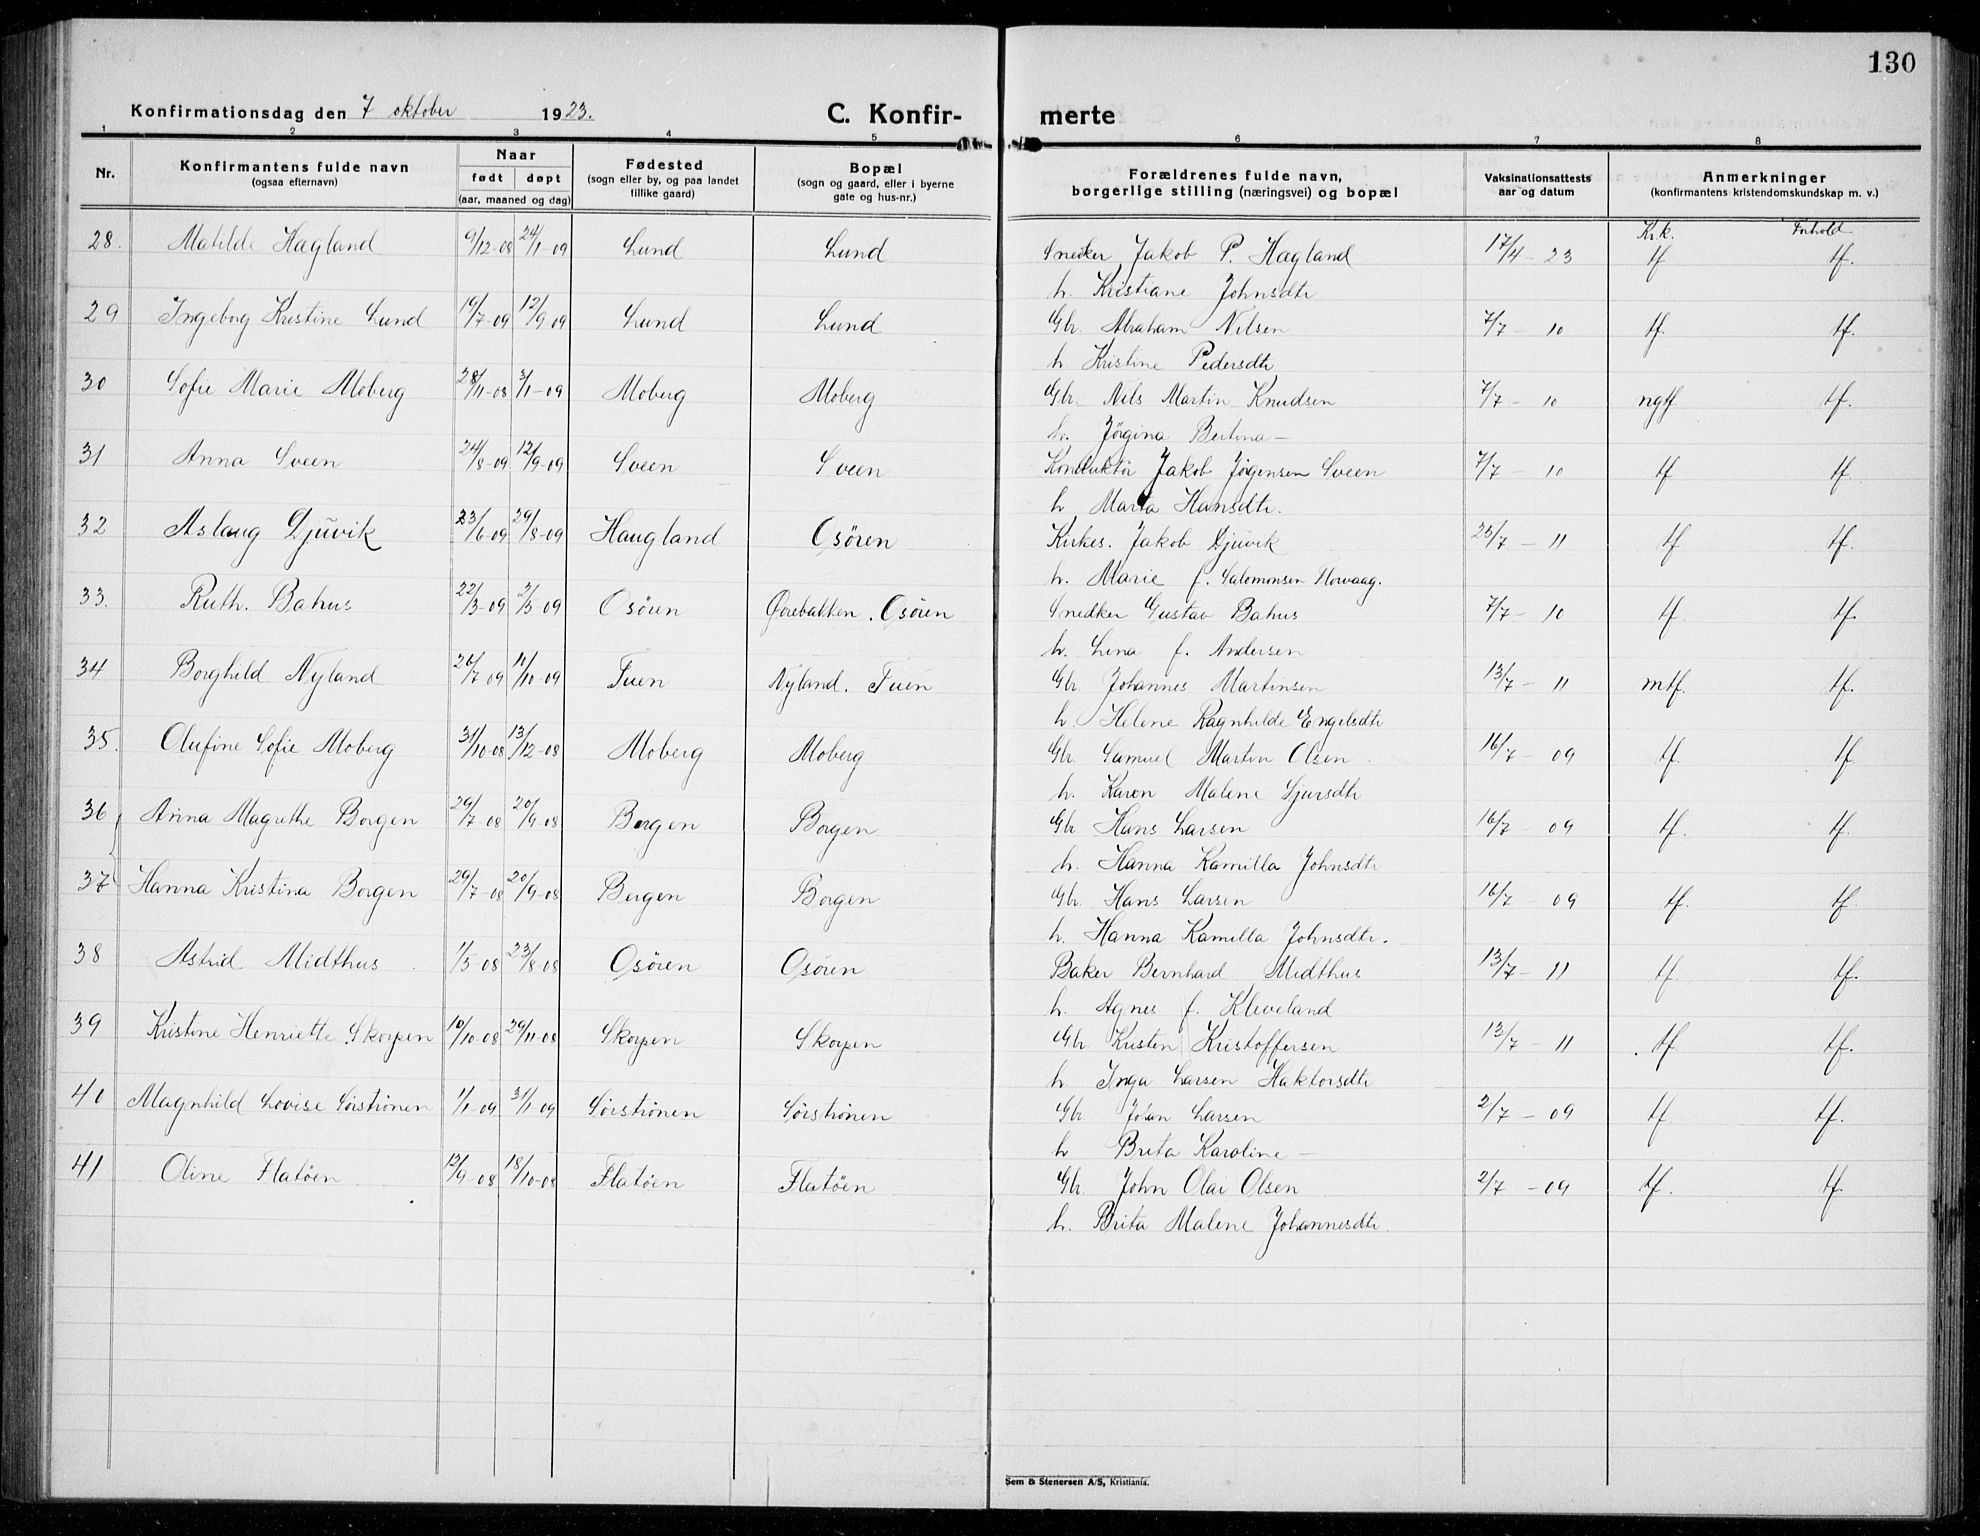 130
Konfirmationsdag den 7 oktober 1923.
C. Konfirmerte
1 2 3 4 5 6 7 8
Nr.
Konfirmantens fulde navn
(ogsaa efternavn)
Naar
født døpt
(aar, maaned og dag)
Fødested
(sogn eller by, og paa landet
tillike gaard)
Bopæl
(sogn og gaard, eller i byerne
gate og hus-nr.)
Forældrenes fulde navn,
borgerlige stilling (næringsvei) og bopæl
Vaksinationsattests
aar og datum
Anmerkninger
(konfirmantens kristendomskundskap m. v.)
Krk. Forhold
28. Matilde Hagland 9/12-08 24/1-09 Lund Lund Snedker Jakob P. Hagland 17/4-23 tf tf.
h. Kristiane Johnsdtr
29 Ingeborg Kristine Lund 19/7-09 12/9-09 Lund Lund Gbr. Abraham Nilsen 7/7-10 tf. tf.
h Kristine Pedersdtr
30 Sofie Marie Moberg 28/11-08 3/1-09 Moberg Moberg Gbr. Nils Martin Knudsen 7/7-10 ngtf tf.
h. Jørgina Bertina —
31 Anna Sveen 24/8-09 12/9-09 Sveen Sveen Konduktør Jakob Jørgensen Sveen 7/7-10 tf tf.
h Marta Hansdtr.
32 Aslaug Djuvik 23/6-09 29/8-09 Haugland Osören Kirkes. Jakob Djuvik 25/7-11 tf tf.
h. Marie f. Salomonsen Norvaag.
33. Ruth. Bahus 22/3-09 2/5-09 Osören Ørebakken. Osören Snedker Gustav Bahus 7/7-10 tf. tf.
h. Lina f. Andersen
34 Borghild Nyland 26/7-09 10/10-09 Tuen Nyland. Tuen Gbr. Johannes Martinsen 13/7-11 mtf. tf.
h Helene Ragnhilde Engelsdtr
35. Olufine Sofie Moberg 31/10-08 13/12-08 Moberg Moberg Gbr Samuel Martin Olsen 16/7-09 tf. tf
h. Karen Malene Sjursdtr
36 Anna Magrethe Borgen 29/7-08 20/9-08 Borgen Borgen Gbr Hans Larsen 16/7-09 tf. tf.
h. Hanna Kamilla Johnsdtr
37 Hanna Kristina Borgen 29/7-08 20/9-08 Borgen Borgen Gbr. Hans Larsen 16/7-09 tf. tf
h. Hanna Kamilla Johnsdtr.
38 Astrid Midthus 1/5-08 23/8-08 Osören Osören Baker Bernhard Midthus 13/7-11 tf. tf.
h. Agnes f. Kleveland
39 Kristine Henriette Skorpen 10/10-08 29/11-08 Skorpen Skorpen Gbr Kristen Kristoffersen 13/7-11 tf. tf.
h Inga Larsen Haktorsdtr
40 Magnhild Lovise Sörströnen 1/1-09 31/1-09 Sörströnen Sörströnen Gbr Johan Larsen 2/7-09 tf tf.
h Brita Karoline —
41 Oline Flatöen 12/9-08 18/10-08 Flatöen Flatöen Gbr. John Olai Olsen 2/7-09 tf. tf.
h. Brita Malene Johannesdtr.
Sem & Stenersen A/S, Kristiania.